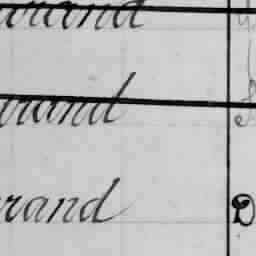 urand
urand
rand D